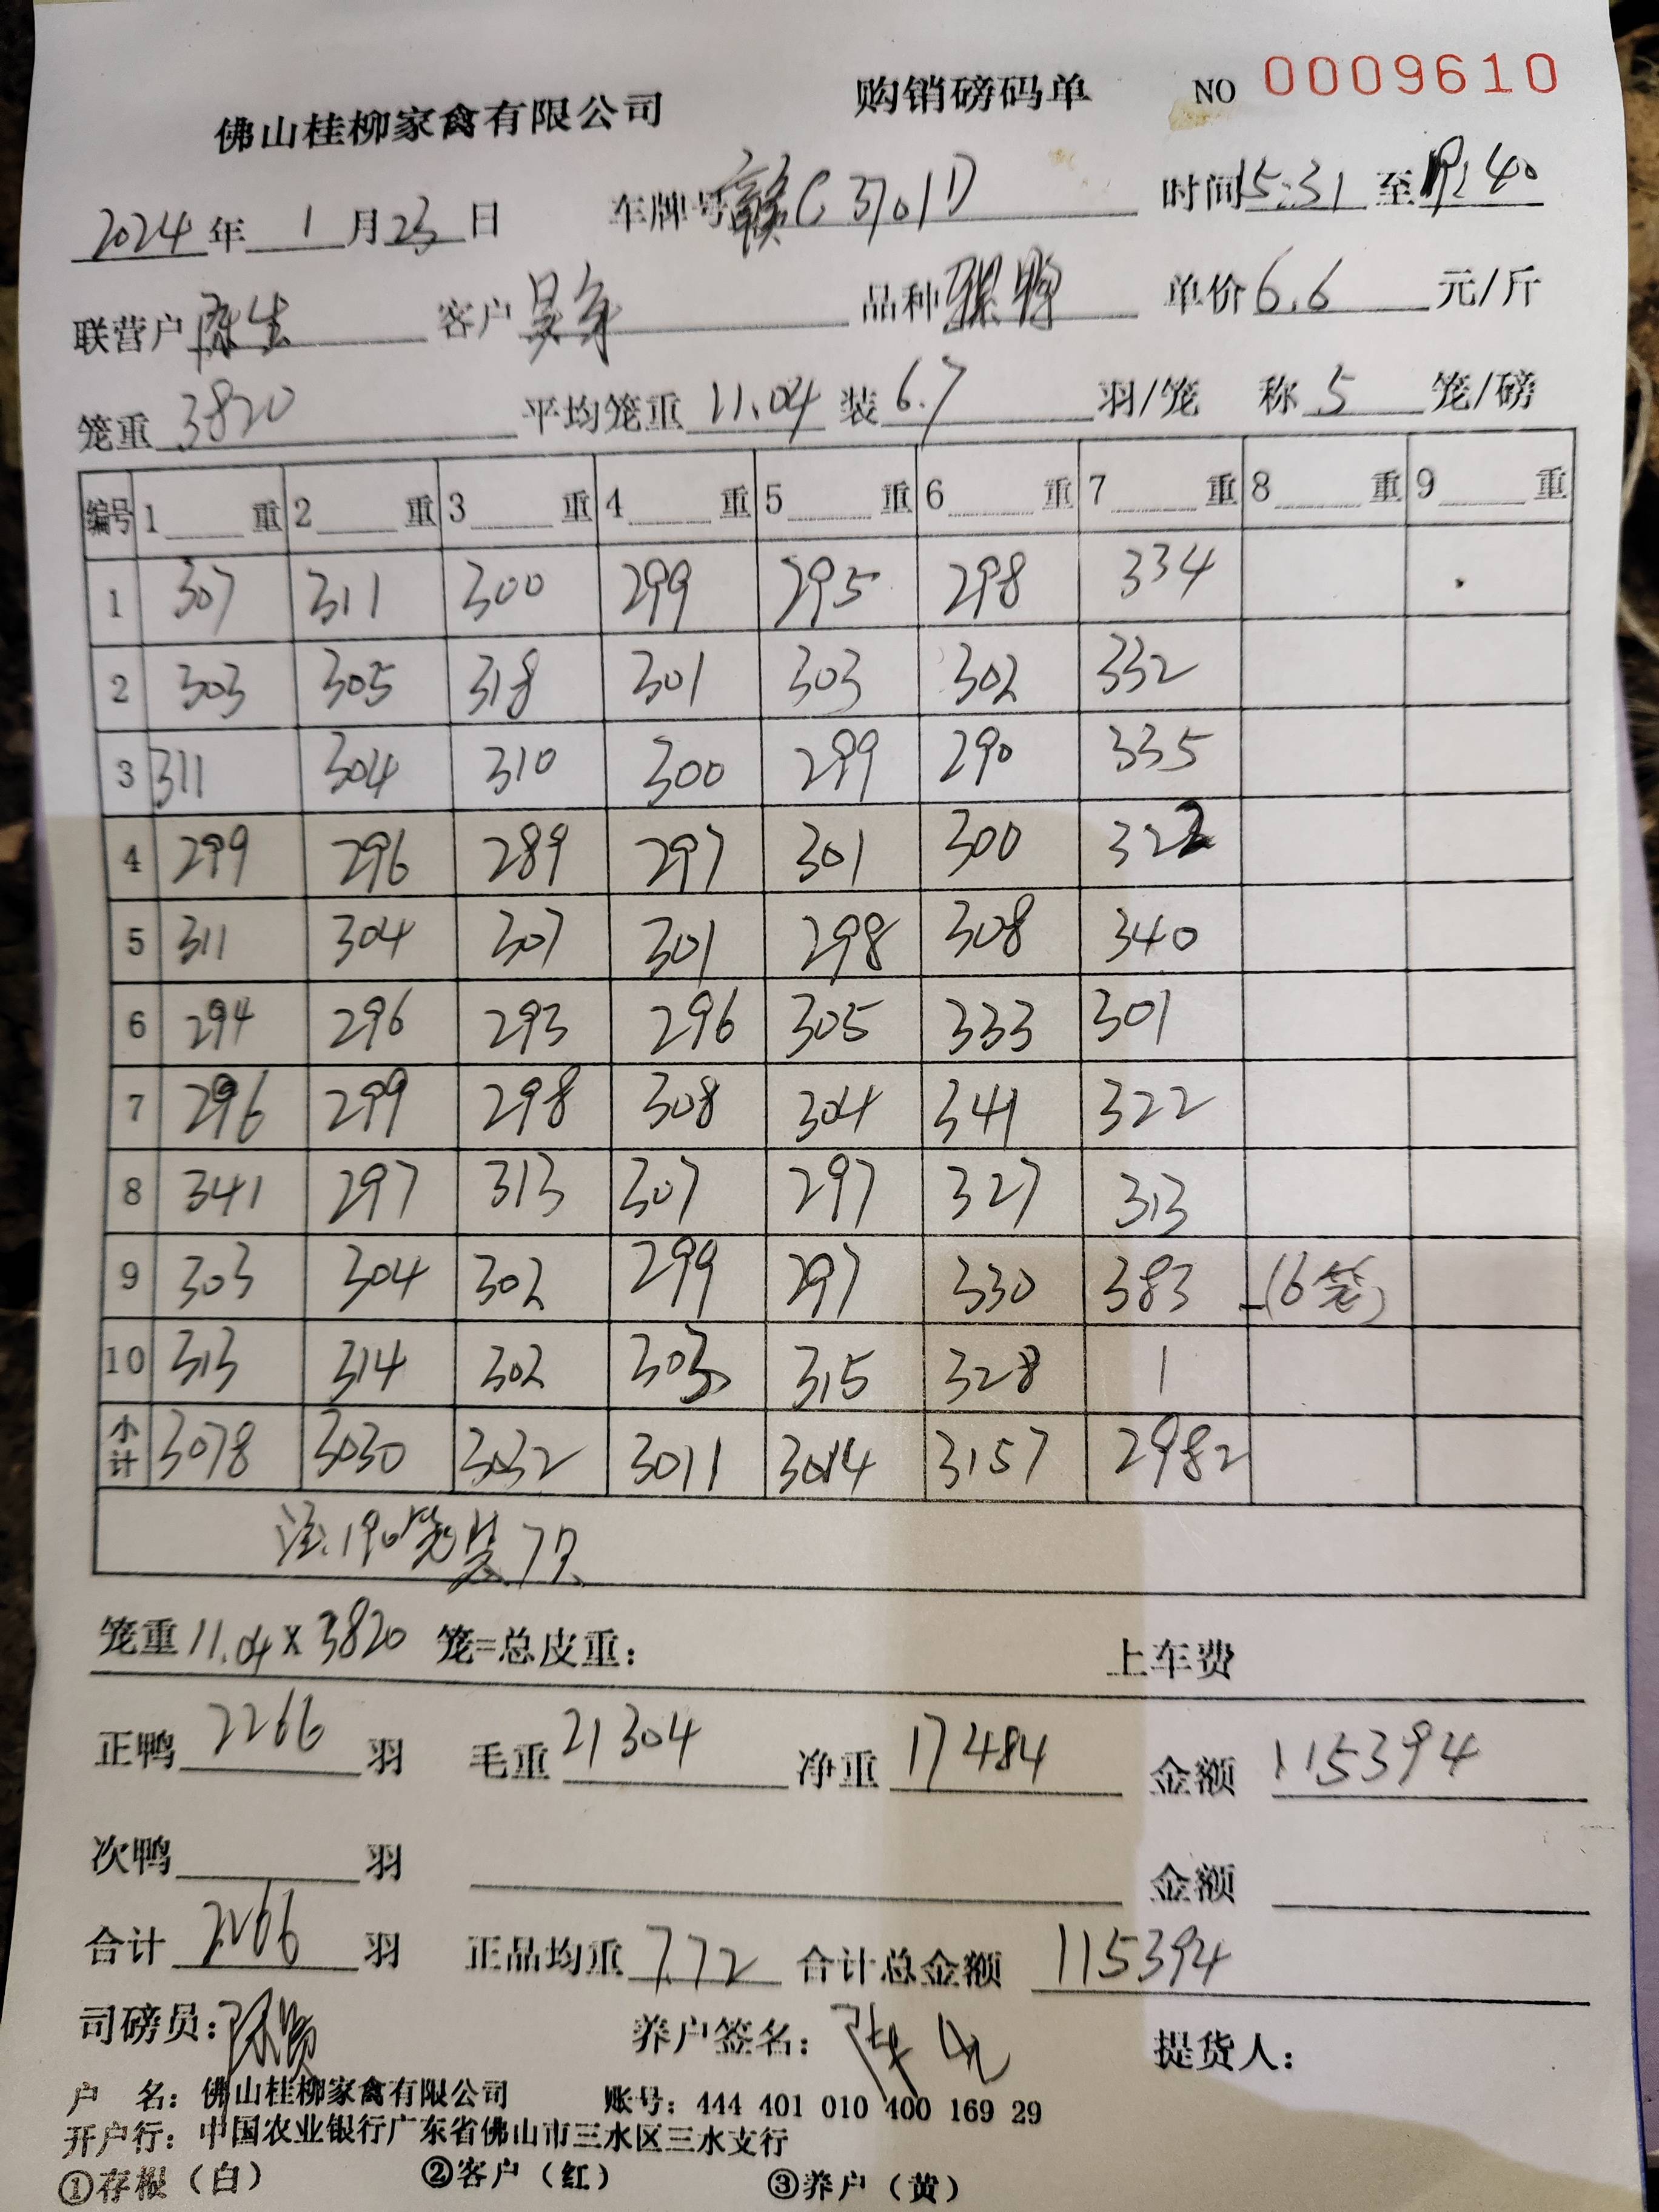 佛山桂柳家禽有限公司 购销磅码单 NO 0009610
2024年 1 月 23 日 车牌号 赣C3701D 时间 15:31 至 :40
联营户 陈生 客户 吴 品种 骡鸭 单价 6.6 元/斤
笼重 3820 平均笼重 11.04 装 6.7 羽/笼 称 5 笼/磅
编号 1 重 2 重 3 重 4 重 5 重 6 重 7 重 8 重 9 重
1 307 311 300 299 295 298 334
2 303 305 318 301 303 302 332
3 311 304 310 300 299 290 335
4 299 296 289 297 301 300 322
5 311 304 307 301 298 308 340
6 294 296 293 296 305 333 301
7 296 299 298 308 304 341 322
8 341 297 313 307 297 327 313
9 303 304 302 299 297 330 383 (6笼)
10 313 314 302 303 315 328 1
小计 3078 3030 3032 3011 3014 3157 2982
注.190笼装7只
笼重 11.04 x 3820 笼=总皮重: 上车费
正鸭 2266 羽 毛重 21304 净重 17484 金额 115394
次鸭 羽 金额
合计 2266 羽 正品均重 7.72 合计总金额 115394
司磅员: 养户签名: 提货人:
户 名: 佛山桂柳家禽有限公司 账号: 444 401 010 400 169 29
开户行: 中国农业银行广东省佛山市三水区三水支行
①存根(白) ②客户(红) ③养户(黄)